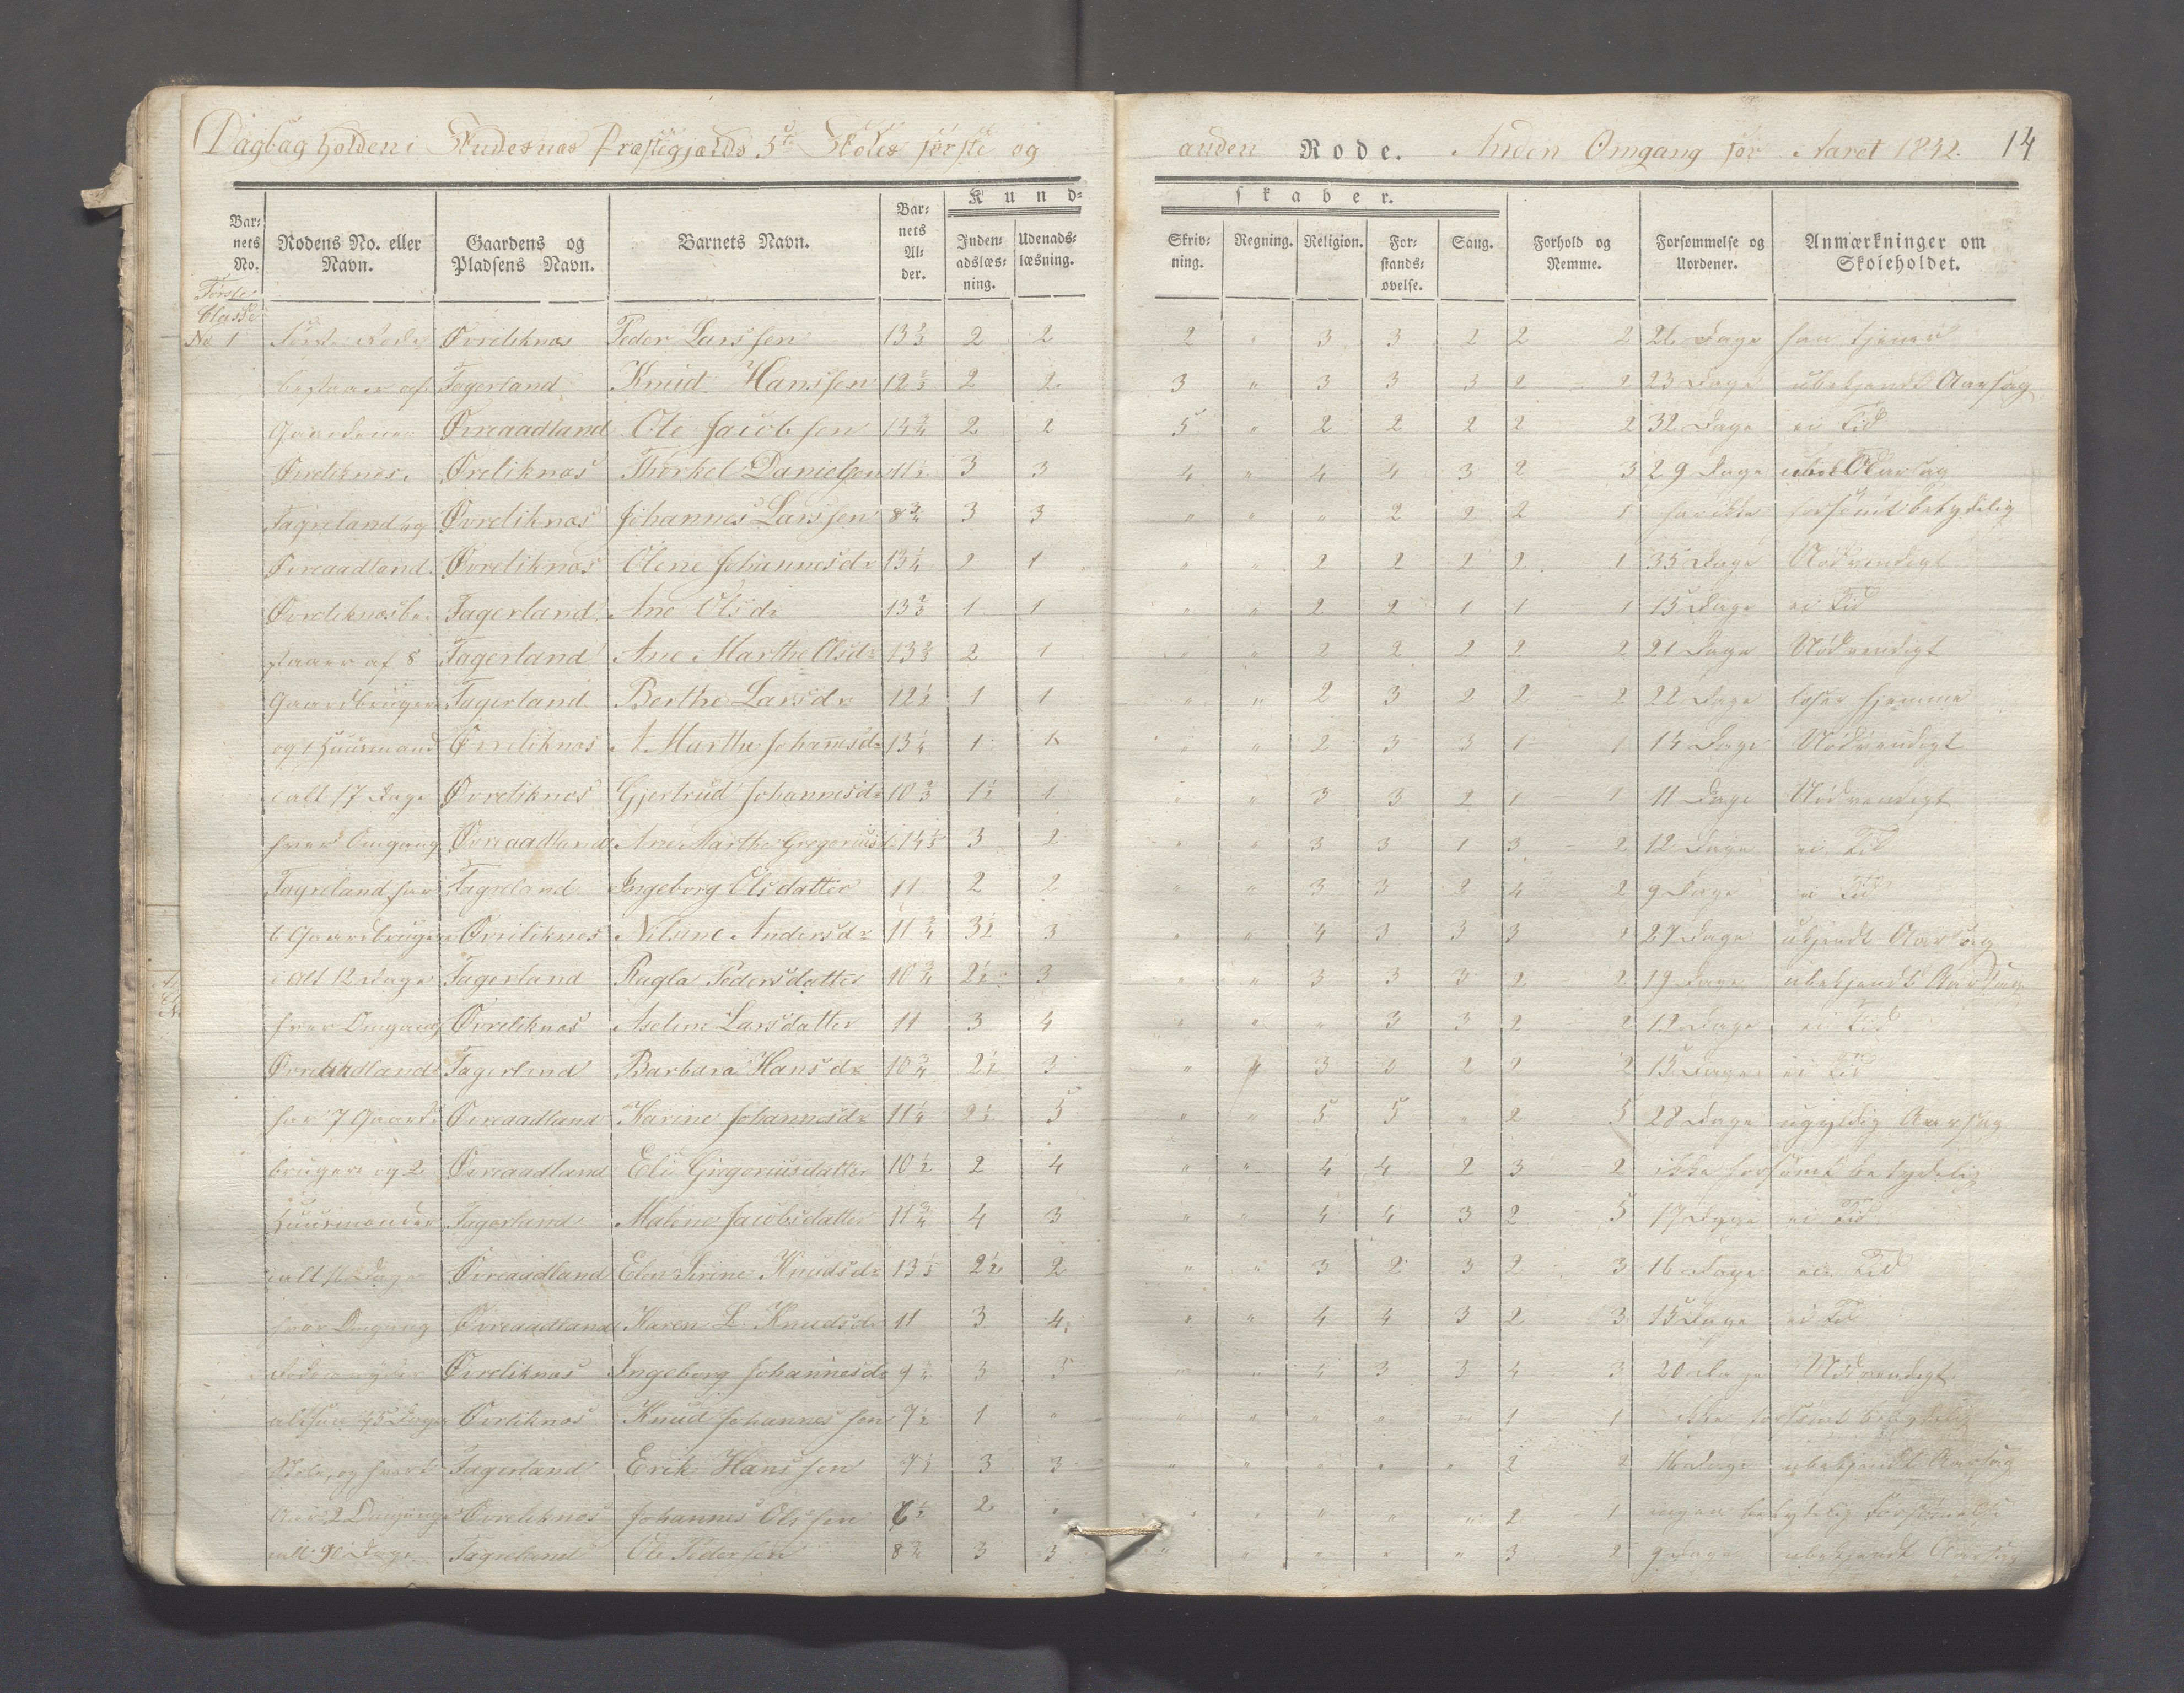 Dagbog holden i Skudesnæs Præstegjælds 5te Skoles første og anden Rode. Anden Omgang for Aaret 1842. 14
Kundskaber.
Barnets No. Rodens No. eller Navn. Gaardens og Pladsens Navn. Barnets Navn. Barnets Alder. Indenadslæsning. Udenadslæsning. Skrivning. Regning. Religion. Forstandsøvelse. Sang. Forhold og Nemme. Forsømmelse og Uordener. Anmærkninger om Skoleholdet.
Første Classe
No 1 første Rode Øvreliknæs Peder Larssen 13 2/3 2 2 2 " 3 3 2 2 2 26 Dage han tjener
bestaar af Fagerland Knud Hanssen 12 2/3 2 2 3 " 3 3 3 2 2 23 Dage ubekjendt Aarsag
Gaardene: Øvreaadland Ole Jacobsen 14 3/4 2 2 5 " 2 2 2 2 2 32 Dage ei Tid
Øvreliknæs, Øvreliknæs Thorkel Danielsen 11 1/2 3 3 4 " 4 4 3 2 3 29 Dage Aarsag
Fagreland og Øvreliknæs Johannes Larssen 8 3/4 3 3 " " " 2 2 2 1 har ikke forsömt betydelig
Øvreaadland. Øvreliknæs Olene Johannesdr 13 1/4 2 1 " " 2 2 2 2 1 35 Dage Nödvendigt
Øvreliknæs be- Fagerland Ane Olsdr 13 2/3 1 1 " " 2 2 1 1 1 15 Dage ei Tid
staaer af 8 Fagerland Ane Marthe Olsdr 13 2/3 2 1 " " 2 2 2 2 2 21 Dage Nödvendigt
Gaardbrugere Fagerland Berthe Larsdr 12 1/2 1 1 " " 2 3 2 2 2 22 Dage læser hjemme
og 1 Huusmand Øvreliknæs A. Marthe Johannesdr 13 1/4 1 1 " " 2 3 3 1 1 14 Dage Nödvendigt
ialt 17 Dage Øvreliknæs Gjertrud Johannesdr 10 2/3 1 1/2 1 " " 3 3 2 1 1 11 Dage Nödvendigt
hver Omgang Øvreaadland Ane Marthe Gregoriusd. 14 1/5 3 2 " " 3 3 1 3 2 12 Dage ei Tid
Fagreland har Fagreland Ingeborg Olsdatter 11 2 2 " " 3 3 2 4 2 9 Dage ei Tid
6 Gaardbrugere Øvreliknes Nilsine Andersdr 11 3/4 3 1/2 3 " " 4 3 3 3 2 27 Dage ukjendt Aarsag
i Alt 12 Dage Fagerland Ragla Pedersdatter 10 3/4 2 1/2 3 " " 3 3 3 2 2 19 Dage ubekjendt Aarsag
hver Omgang Øvreliknæs Aseline Larsdatter 11 3 4 " " " 3 3 2 2 12 Dage ei Tid
Fagerland Barbara Hansdr 10 3/4 2 1/2 3 " " 3 3 2 2 2 13 Dage ei Tid
har 7 Gaard- Øvreaadland Karine Johannesdr 11 1/4 2 1/2 5 " " 5 5 " 2 5 28 Dage ugyldig Aarsag
brugere og 2 Øvreaadland Eli Gregoriusdatter 10 1/2 2 4 " " 4 4 2 3 2 ikke forsömt betydelig
Huusmænder Fagerland Malene Jacobsdatter 11 3/4 4 3 " " 4 4 3 2 5 17 Dage ei Tid
ialt 16 Dage Øvreaadland Elen Serine Knudsdr 13 1/5 2 1/2 2 " " 3 2 3 2 3 16 Dage ei Tid
hver Omgang Øvreaadland Karen L. Knudsdr 11 3 4 " " 4 4 3 2 3 15 Dage ei Tid
Øvreliknæs Ingeborg Johannesdr 9 3/4 3 5 " " 4 3 3 4 3 20 Dage Nödvendigt
altsaa 45 Dages Øvreliknæs Knud Johannessen 7 1/2 1 " " " " " " 1 1 ikke forsömt betydelig
Skole, og hvert Fagerland Erik Hanssen 7 1/2 3 3 " " " " " 2 2 16 Dage ubekjendt Aarsag
Aar 2 Omgange Øvreliknæs Johannes Olssen 6 1/2 2 " " " " " " 2 1 ingen betydelig Forsömmelse
ialt 90 Dage Fagreland Ole Pedersen 8 3/4 3 3 " " " " " 3 2 9 Dage ubekjendt Aarsag